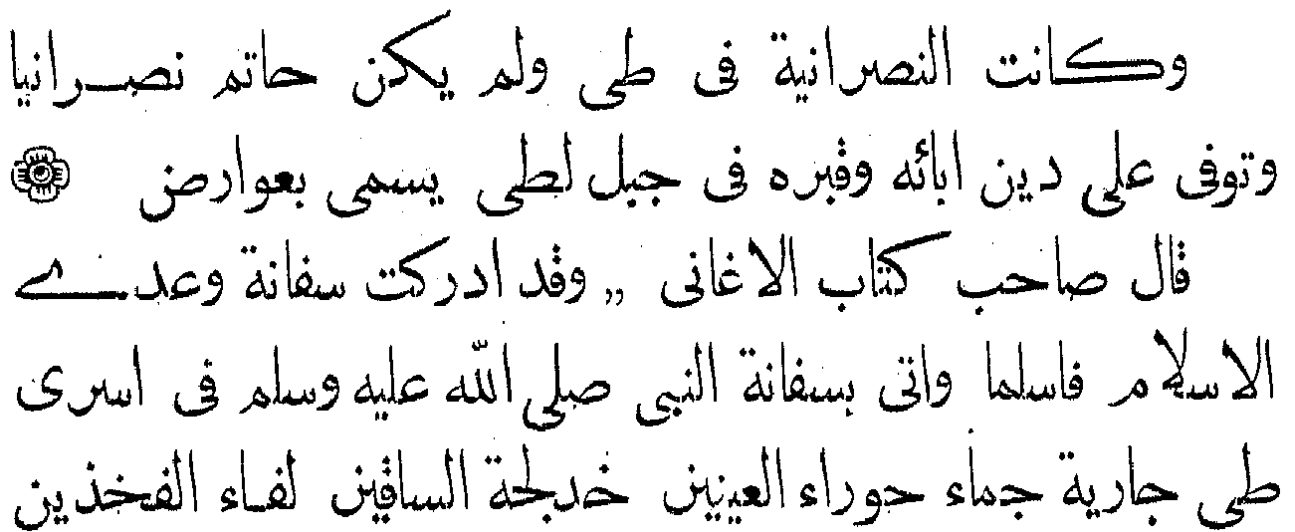 وكانت النصرانية فى طى ولم يكن حاتم نصرانيا
وتوفى على دين ابائه وقبره فى جبل لطى يسمى بعوارض
قال صاحب كتاب الاغانى ,, وقد ادركت سفانة وعدى
الاسلام فاسلما واتى بسفانة النبى صلى الله عليه وسلم فى اسرى
طى جارية جماء حوراء العينين خدلجة الساقين لفاء الفخذين